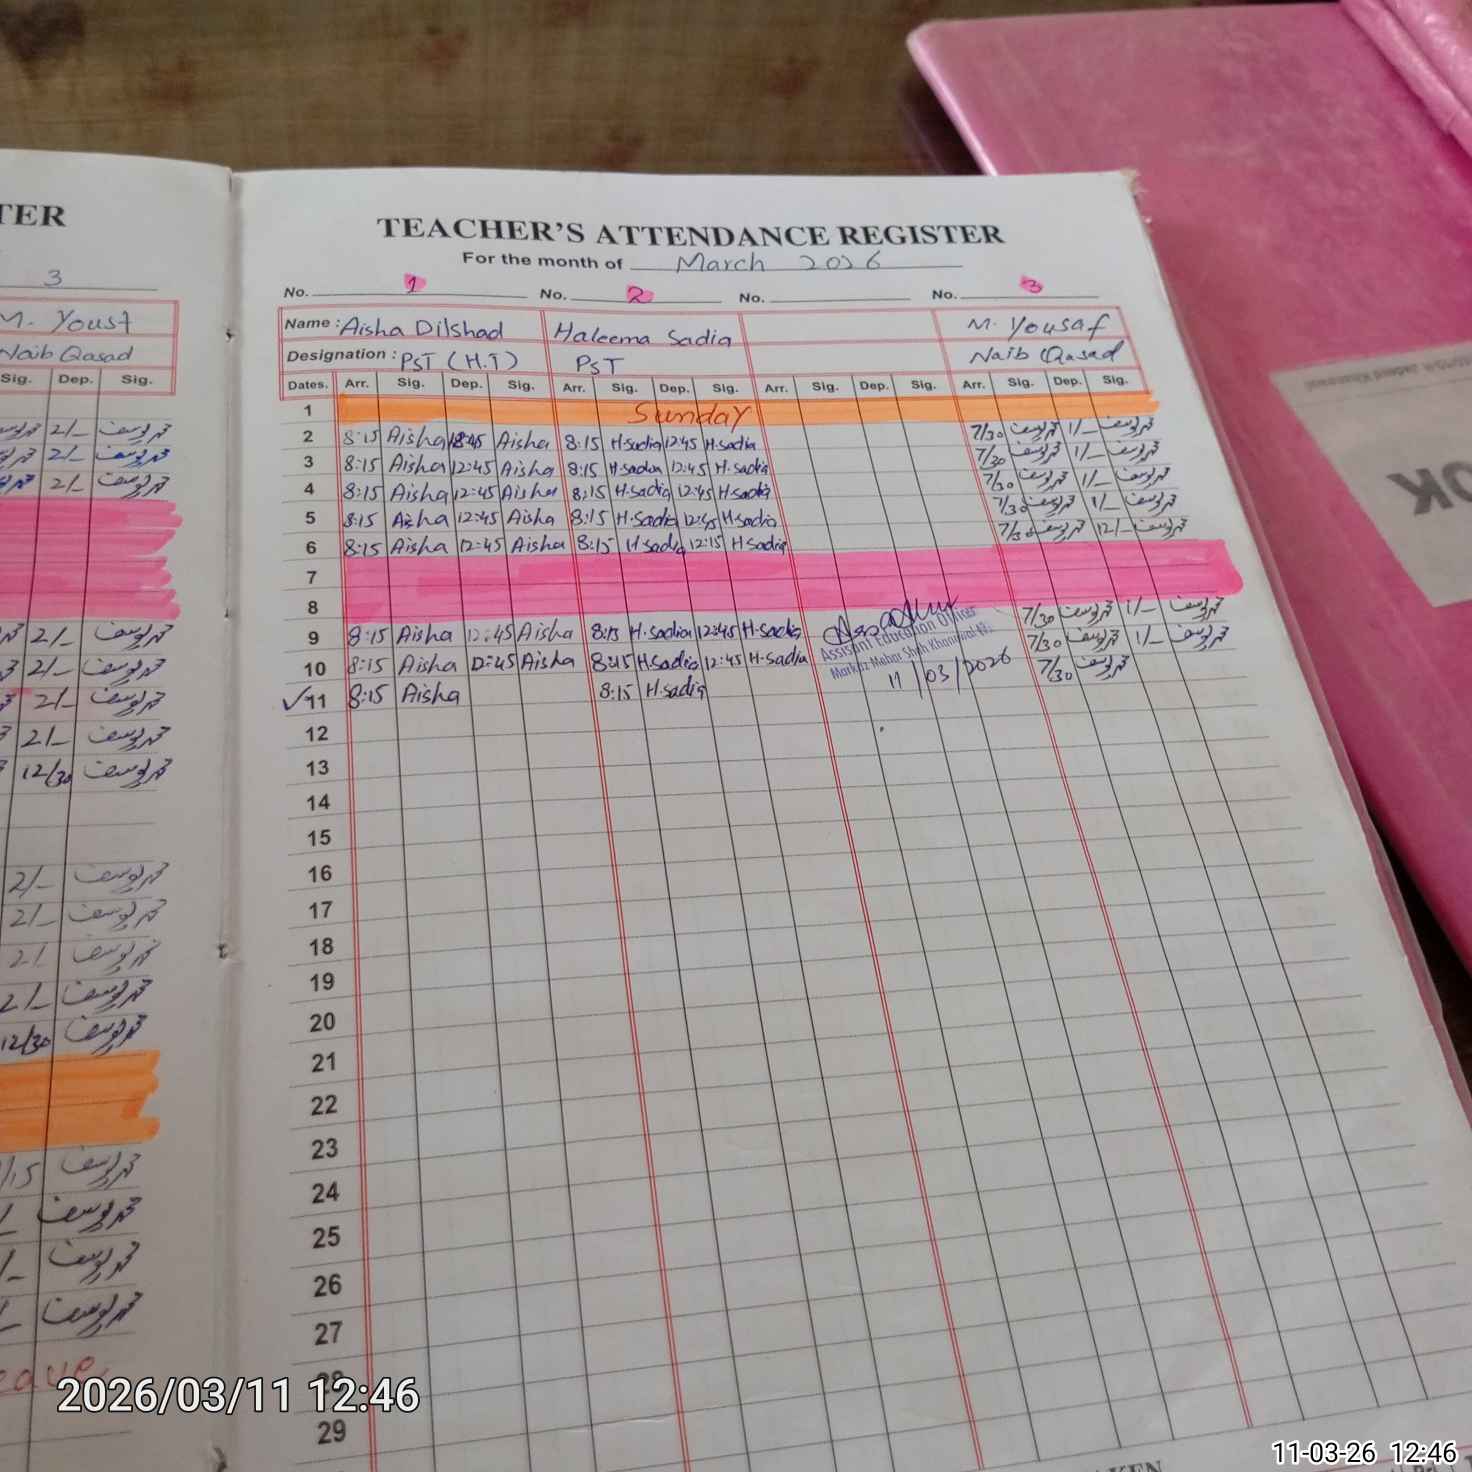 TER
3
M. Yousf
Naib Qasad
Sig. Dep. Sig.
2/- محمد یوسف
2/- محمد یوسف
2/- محمد یوسف
2/- محمد یوسف
2/- محمد یوسف
2/- محمد یوسف
2/- محمد یوسف
12/30 محمد یوسف
2/- محمد یوسف
2/- محمد یوسف
2/- محمد یوسف
2/- محمد یوسف
12/30 محمد یوسف
محمد یوسف
محمد یوسف
محمد یوسف
محمد یوسف
TEACHER'S ATTENDANCE REGISTER
For the month of March 2026
No. 1 No. 2 No. No. 3
Name : Aisha Dilshad Haleema Sadia M. Yousaf
Designation : PST (H.T) PST Naib Qasad
Dates. Arr. Sig. Dep. Sig. Arr. Sig. Dep. Sig. Arr. Sig. Dep. Sig. Arr. Sig. Dep. Sig.
1 Sunday
2 8:15 Aisha 12:45 Aisha 8:15 H.sadia 12:45 H.sadia 7/30 محمد یوسف 1/- محمد یوسف
3 8:15 Aisha 12:45 Aisha 8:15 H.sadia 12:45 H.sadia 7/30 محمد یوسف 1/- محمد یوسف
4 8:15 Aisha 12:45 Aisha 8:15 H.sadia 12:45 H.sadia 7/30 محمد یوسف 1/- محمد یوسف
5 8:15 Aisha 12:45 Aisha 8:15 H.sadia 12:45 H.sadia 7/30 محمد یوسف 1/- محمد یوسف
6 8:15 Aisha 12:45 Aisha 8:15 H.sadia 12:15 H.sadia 7/30 محمد یوسف 12/- محمد یوسف
7
8
9 8:15 Aisha 12:45 Aisha 8:15 H.sadia 12:45 H.sadia 7/30 محمد یوسف 1/- محمد یوسف
10 8:15 Aisha 12:45 Aisha 8:15 H.sadia 12:45 H.sadia 7/30 محمد یوسف 1/- محمد یوسف
11 8:15 Aisha 8:15 H.sadia 7/30 محمد یوسف
Assistant Education Officer
Markaz Mehar Shah Khanewal
11/03/2026
12
13
14
15
16
17
18
19
20
21
22
23
24
25
26
27
28
29
OK
2026/03/11 12:46
11-03-26 12:46